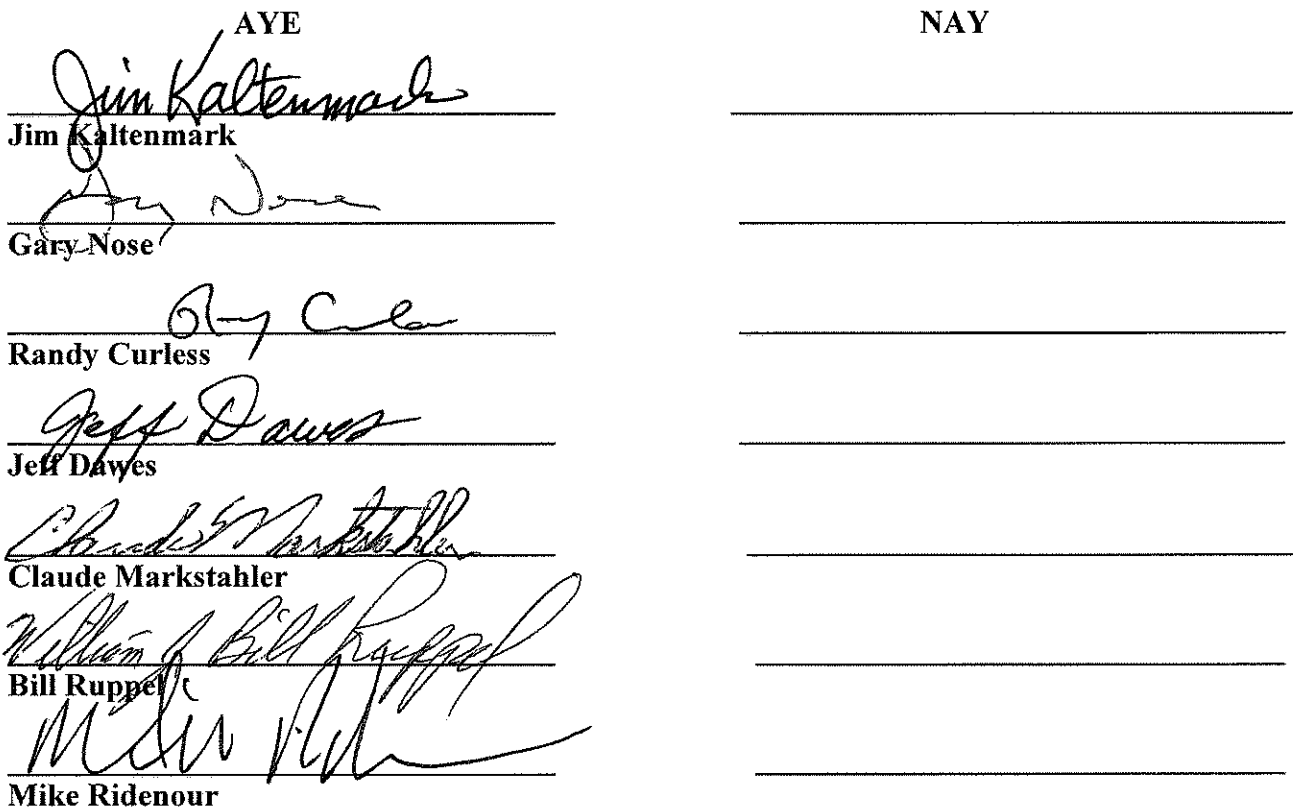 AYE NAY
Jim Kaltenmark
Jim Kaltenmark
Gary Nose
Gary Nose
Randy Curless
Jeff Dawes
Jeff Dawes
Claude Markstahler
Claude Markstahler
William J Bill Ruppel
Bill Ruppel
Mike Ridenour